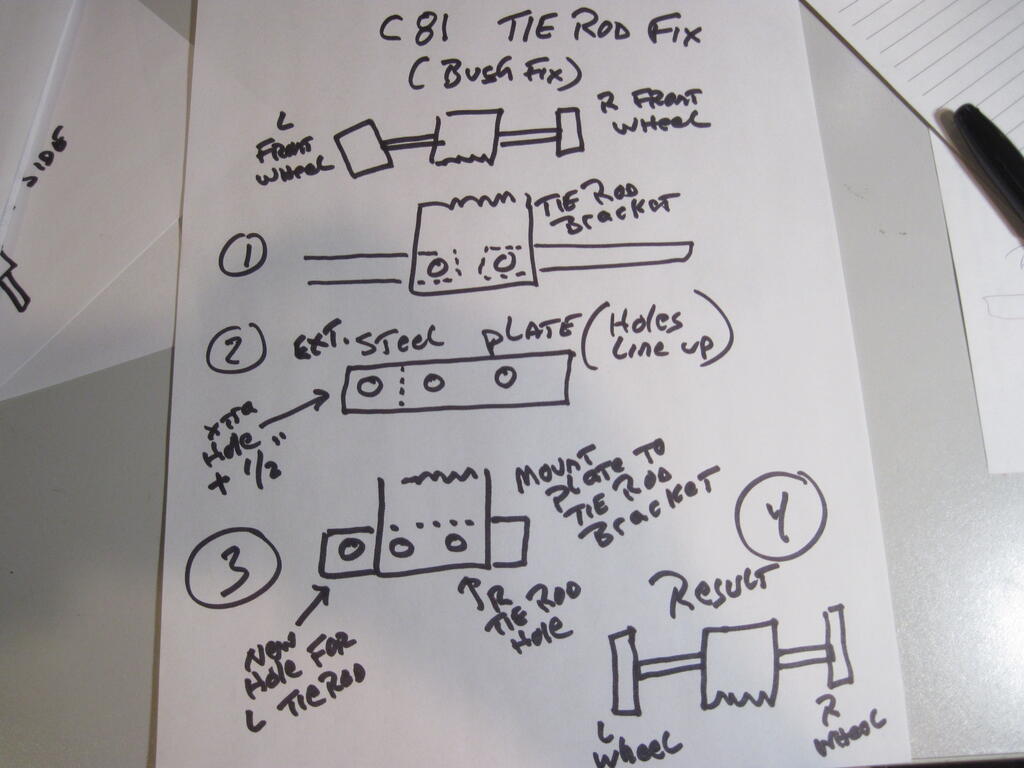 C81 TIE ROD FIX
(BUSH FIX)
L
FRONT
WHEEL
R FRONT
WHEEL
SIDE
1
TIE ROD
BRACKET
2
EXT. STEEL PLATE (HOLES
LINE UP)
XTR
HOLE
+ 1/2"
3
MOUNT
PLATE TO
TIE ROD
BRACKET
4
NEW
HOLE FOR
L TIE ROD
R
TIE ROD
HOLE
RESULT
L
WHEEL
R
WHEEL